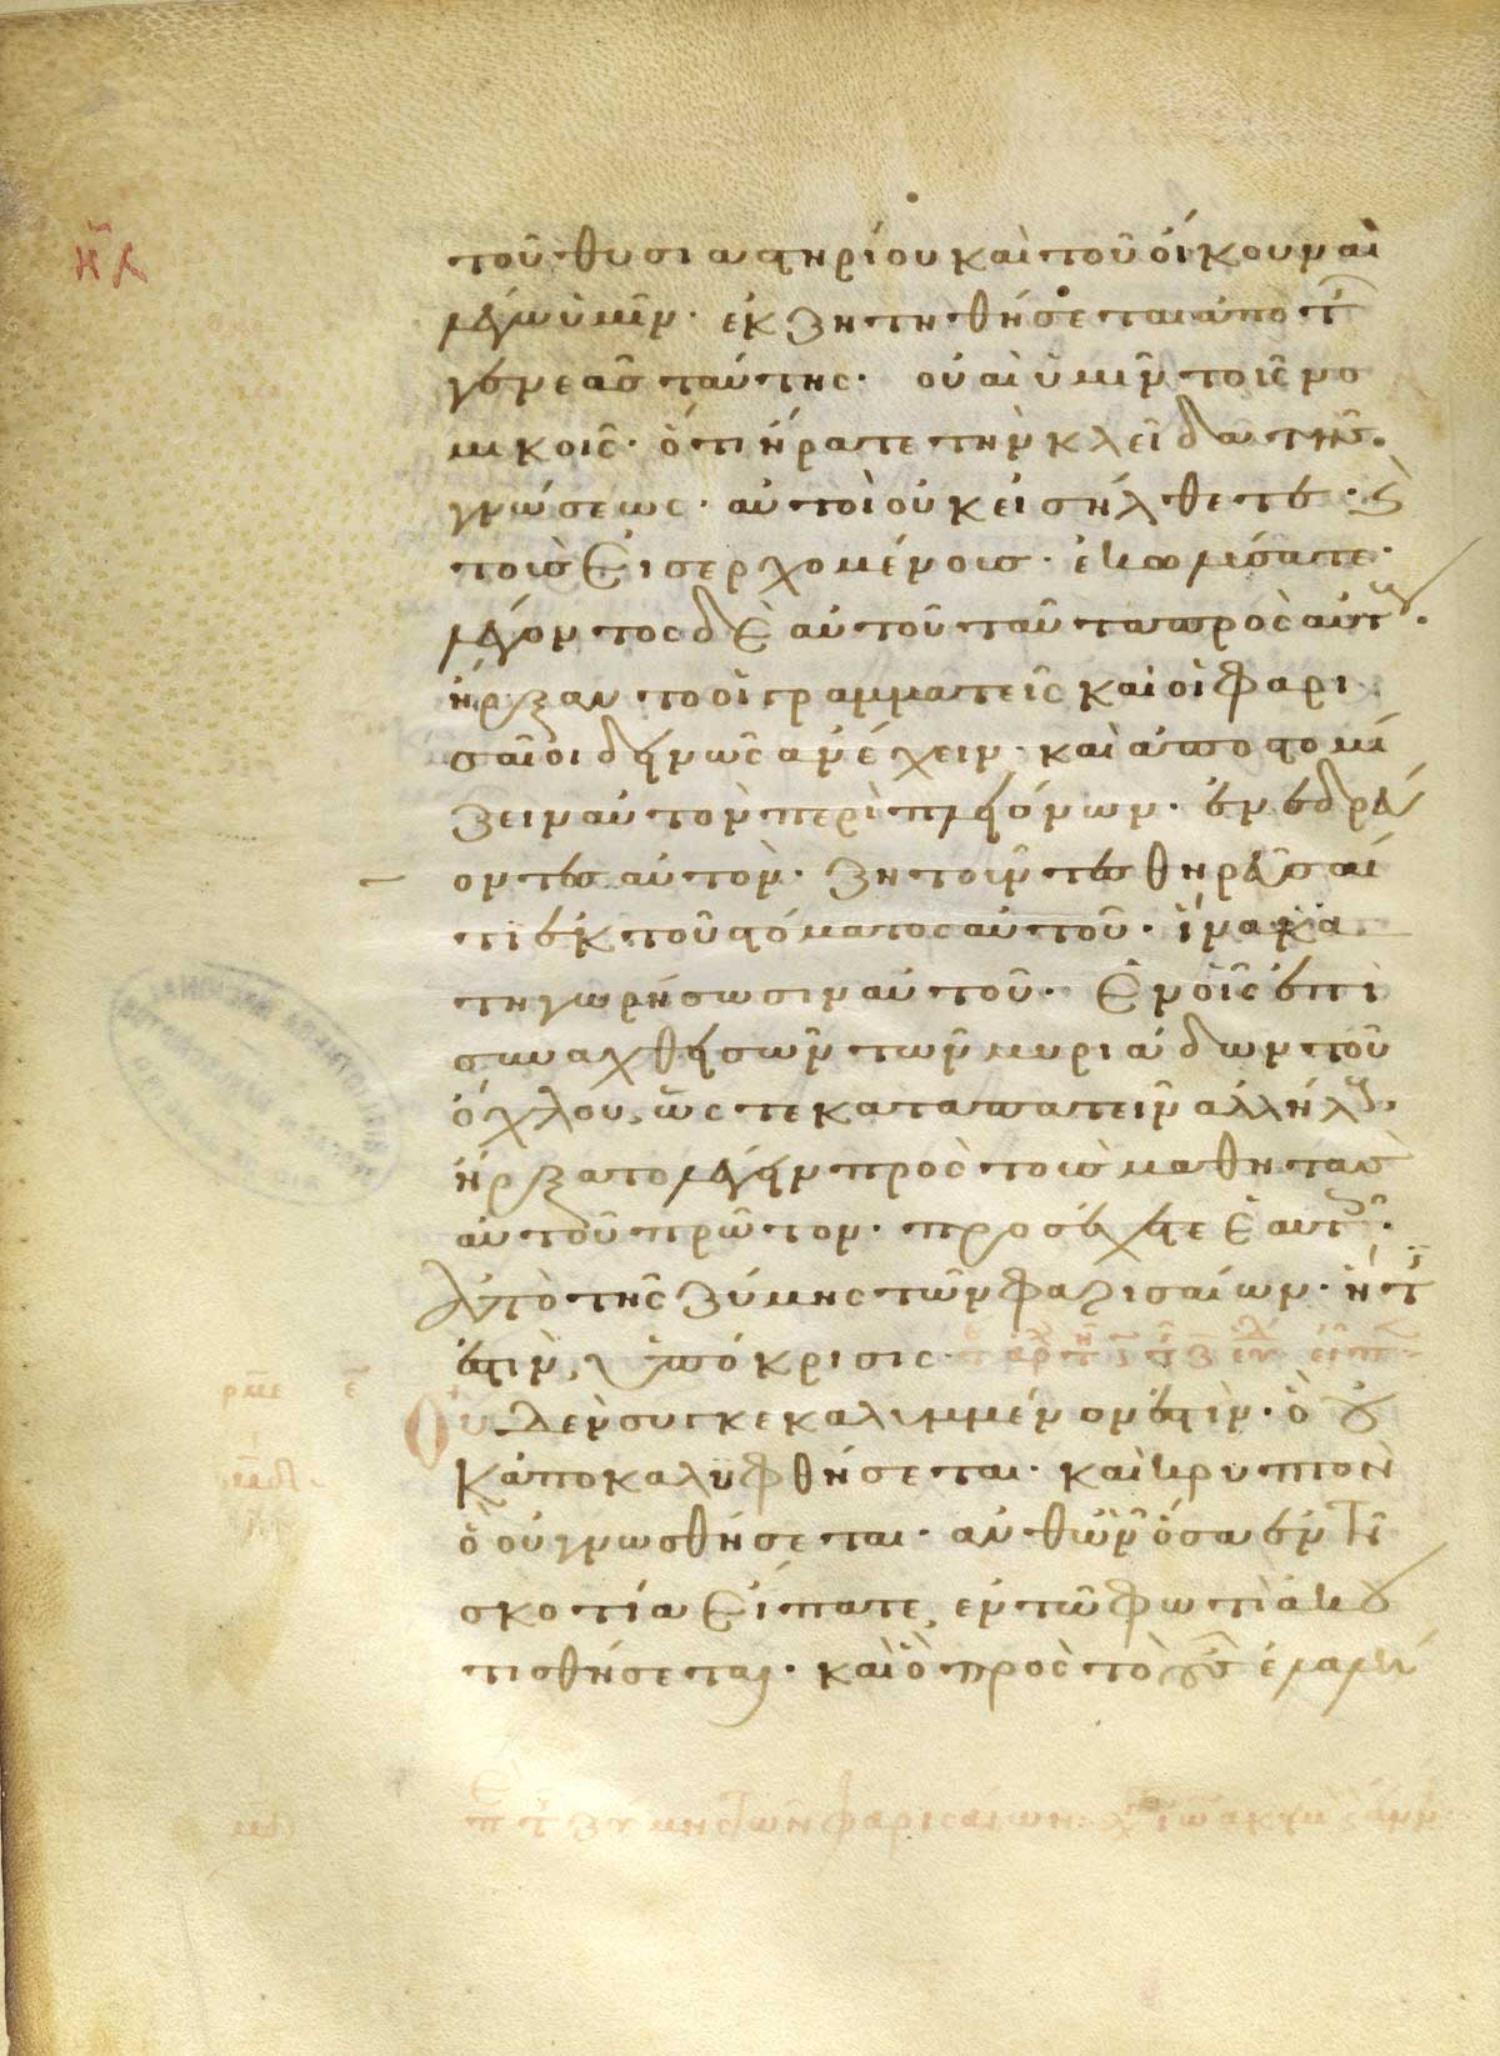 τοῦ θυσιαστηρίου καὶ τοῦ οἴκου ναὶ
λέγω ὑμῖν· ἐκζητηθήσεται ἀπὸ τῆς
γενεᾶς ταύτης· οὐαὶ ὑμῖν τοῖς νο
μικοῖς· ὅτι ἤρατε τὴν κλεῖδα τῆς
γνώσεως· αὐτοὶ οὐκ εἰσήλθετε· καὶ
τοὺς εἰσερχομένους· ἐκωλύσατε·
λέγοντος δὲ αὐτοῦ ταῦτα πρὸς αὐτούς·
ἤρξαντο οἱ γραμματεῖς καὶ οἱ φαρι
σαῖοι δεινῶς ἐνέχειν· καὶ ἀποστομί
ζειν αὐτὸν περὶ πλειόνων· ἐνεδρεύ
οντες αὐτὸν· ζητοῦντες θηρεῦσαί
τι ἐκ τοῦ στόματος αὐτοῦ· ἵνα κα
τηγορήσωσιν αὐτοῦ· ἐν οἷς ἐπι
συναχθεισῶν τῶν μυριάδων τοῦ
ὄχλου, ὥστε καταπατεῖν ἀλλήλους,
ἤρξατο λέγειν πρὸς τοὺς μαθητὰς
αὐτοῦ πρῶτον· προσέχετε ἑαυτοῖς·
ἀπὸ τῆς ζύμης τῶν φαρισαίων· ἥτις
ἐστιν, ὑπόκρισις·
Οὐδὲν συγκεκαλυμμένον ἐστὶν· ὃ οὐ
κ ἀποκαλυφθήσεται· καὶ κρυπτὸν
ὃ οὐ γνωσθήσεται· ἀνθ ὧν ὅσα ἐν τῇ
σκοτία εἴπατε, ἐν τῶ φωτὶ ἀκου
σθήσεται· καὶ ὃ πρὸς τὸ οὖς ἐλαλή